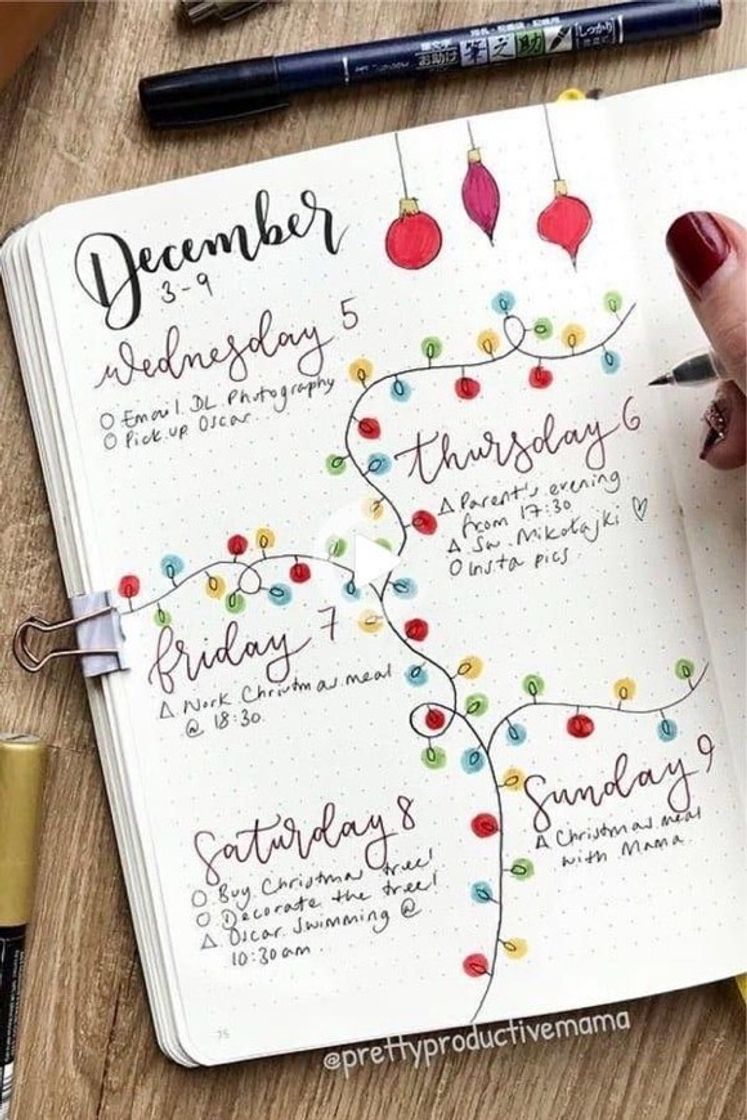 筆之助
しっかり
お助け
December
3-9
Wednesday 5
O Email DL Photography
O Pick up Oscar
Thursday 6
Δ Parent's evening
from 17:30
Δ Św. Mikołajki ♡
O Insta pics
Friday 7
Δ Work Christmas meal
@ 18:30
Saturday 8
O Buy Christmas tree!
O Decorate the tree!
Δ Oscar Swimming @
10:30am
Sunday 9
Δ Christmas meal
with Mama
75
@prettyproductivemama